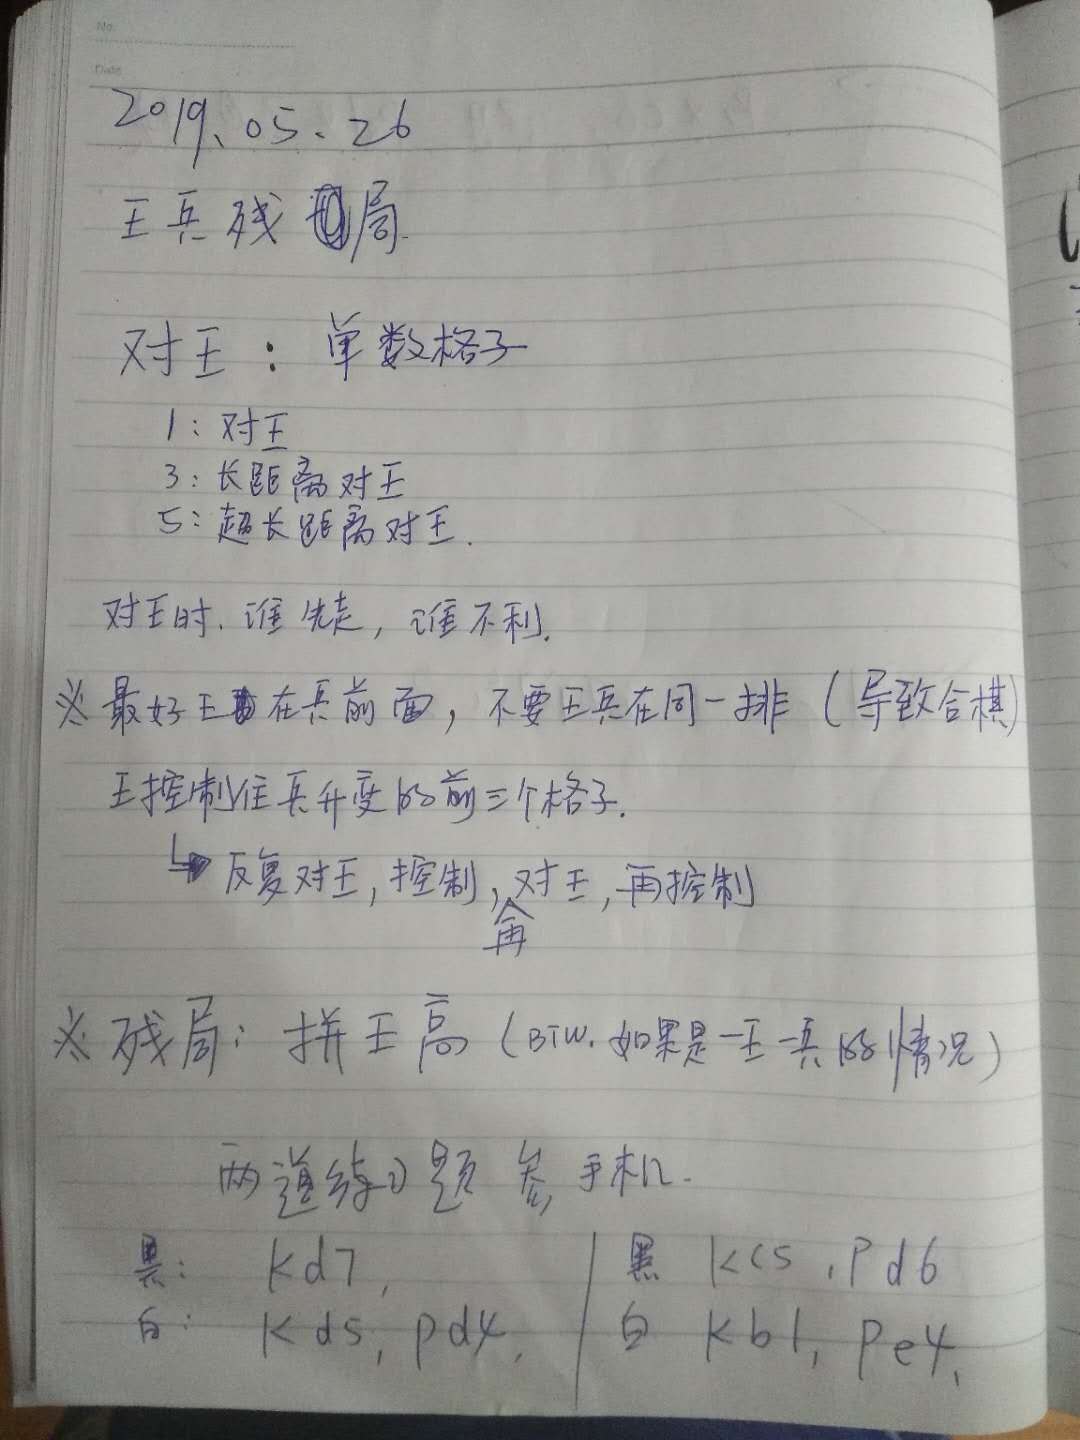 No.
Date
2019.05.26
王兵残局.
对王：单数格子
1：对王
3：长距离对王
5：超长距离对王.
对王时.谁先走，谁不利.
※最好王在兵前面，不要王兵在同一排（导致合棋）
王控制住兵升变的前三个格子.
↳反复对王，控制，再对王，再控制
※残局：拼王高（BTW.如果是一王一兵的情况）
两道练习题参手机.
黑：Kd7,
白：Kd5, pd4,
黑 Kc5, Pd6
白 Kb1, Pe4,